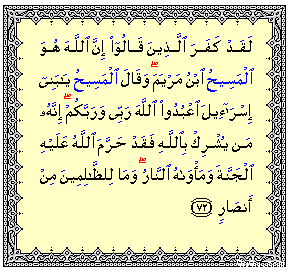 لَقَدْ كَفَرَ ٱلَّذِينَ قَالُوٓا۟ إِنَّ ٱللَّهَ هُوَ
ٱلْمَسِيحُ ٱبْنُ مَرْيَمَ ۖ وَقَالَ ٱلْمَسِيحُ يَـٰبَنِىٓ
إِسْرَٰٓءِيلَ ٱعْبُدُوا۟ ٱللَّهَ رَبِّى وَرَبَّكُمْ ۖ إِنَّهُۥ
مَن يُشْرِكْ بِٱللَّهِ فَقَدْ حَرَّمَ ٱللَّهُ عَلَيْهِ
ٱلْجَنَّةَ وَمَأْوَىٰهُ ٱلنَّارُ ۖ وَمَا لِلظَّـٰلِمِينَ مِنْ
أَنصَارٍ ﴿٧٢﴾